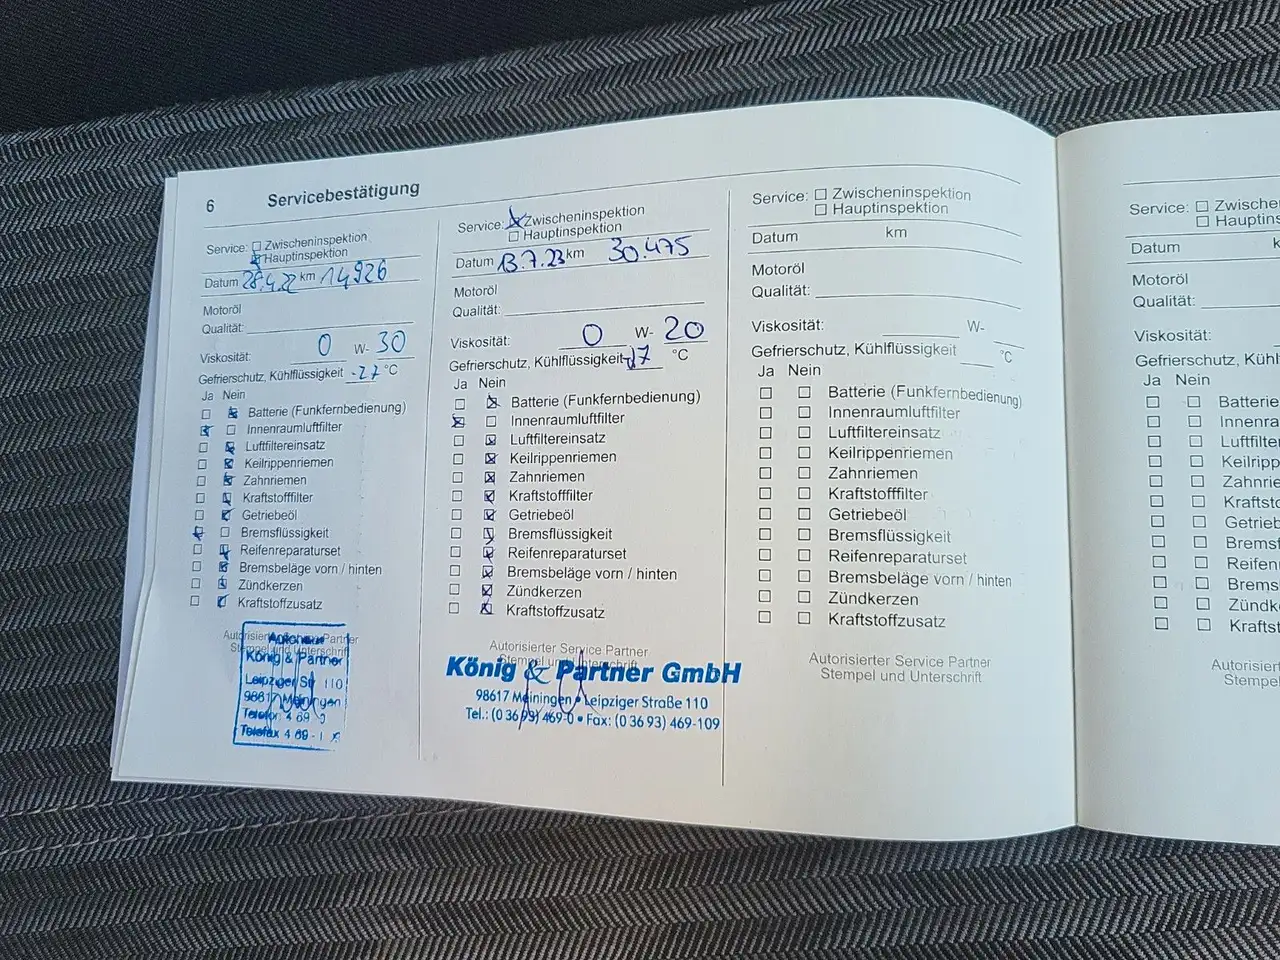 6 Servicebestätigung
Service: Zwischeninspektion
Hauptinspektion
Datum 28.4.22 km 14926
Motoröl
Qualität:
Viskosität: 0 W- 30
Gefrierschutz, Kühlflüssigkeit -27 °C
Ja Nein
Batterie (Funkfernbedienung)
Innenraumluftfilter
Luftfiltereinsatz
Keilrippenriemen
Zahnriemen
Kraftstofffilter
Getriebeöl
Bremsflüssigkeit
Reifenreparaturset
Bremsbeläge vorn / hinten
Zündkerzen
Kraftstoffzusatz
Autorisierter Service Partner
Stempel und Unterschrift
Autohaus
König & Partner
Leipziger Str 110
98617 Meiningen
Telefon 4 69
Telefax 4 69 - 1
Service: Zwischeninspektion
Hauptinspektion
Datum 13.7.23 km 30.475
Motoröl
Qualität:
Viskosität: 0 W- 20
Gefrierschutz, Kühlflüssigkeit °C
Ja Nein
Batterie (Funkfernbedienung)
Innenraumluftfilter
Luftfiltereinsatz
Keilrippenriemen
Zahnriemen
Kraftstofffilter
Getriebeöl
Bremsflüssigkeit
Reifenreparaturset
Bremsbeläge vorn / hinten
Zündkerzen
Kraftstoffzusatz
Autorisierter Service Partner
Stempel und Unterschrift
König & Partner GmbH
98617 Meiningen • Leipziger Straße 110
Tel.: (0 36 93) 469-0 • Fax: (0 36 93) 469-109
Service: Zwischeninspektion
Hauptinspektion
Datum km
Motoröl
Qualität:
Viskosität: W-
Gefrierschutz, Kühlflüssigkeit °C
Ja Nein
Batterie (Funkfernbedienung)
Innenraumluftfilter
Luftfiltereinsatz
Keilrippenriemen
Zahnriemen
Kraftstofffilter
Getriebeöl
Bremsflüssigkeit
Reifenreparaturset
Bremsbeläge vorn / hinten
Zündkerzen
Kraftstoffzusatz
Autorisierter Service Partner
Stempel und Unterschrift
Service: Zwischenins
Hauptins
Datum k
Motoröl
Qualität:
Viskosität:
Gefrierschutz, Kühl
Ja Nein
Batterie
Innenra
Luftfilte
Keilripp
Zahnrie
Kraftsto
Getrieb
Bremsf
Reifen
Brems
Zündk
Kraftst
Autoris
Stemp